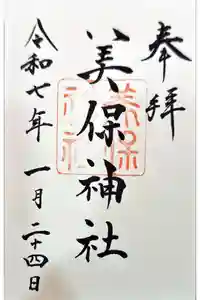 奉拝
美保神社
令和七年 一月二十四日